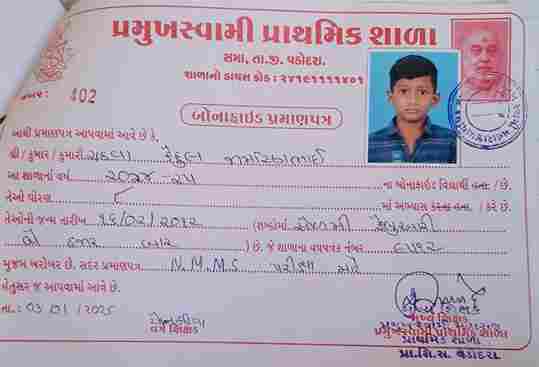 પ્રમુખસ્વામી પ્રાથમિક શાળા
સમા, તા.જી. વડોદરા.
શાળાનો ડાયસ કોડ : ૨૪૧૯૧૧૧૧૪૦૧
નંબર : 402
બોનાફાઇડ પ્રમાણપત્ર
આથી પ્રમાણપત્ર આપવામાં આવે છે કે,
શ્રી / કુમાર / કુમારી
આ શાળાના વર્ષ ૨૦૨૪-૨૫ ના બોનાફાઇડ વિદ્યાર્થી હતા / છે.
તેઓ ધોરણ ૮ માં અભ્યાસ કરતા હતા / કરે છે.
તેઓની જન્મ તારીખ ૧૬/૦૨/૨૦૧૨ (શબ્દોમાં સોળમી ફેબ્રુઆરી
બે હજાર બાર ) છે. જે શાળાના વયપત્રક નંબર
મુજબ બરોબર છે. સદર પ્રમાણપત્ર N.M.M.S પરીક્ષા માટે
હેતુસર જ આપવામાં આવે છે.
તા. : 03/01/2025
વર્ગ શિક્ષક
મુખ્ય શિક્ષક
પ્રમુખસ્વામી પ્રાથમિક શાળા
પ્રાથમિક શાળા
પ્રા.શિ.સ. વડોદરા